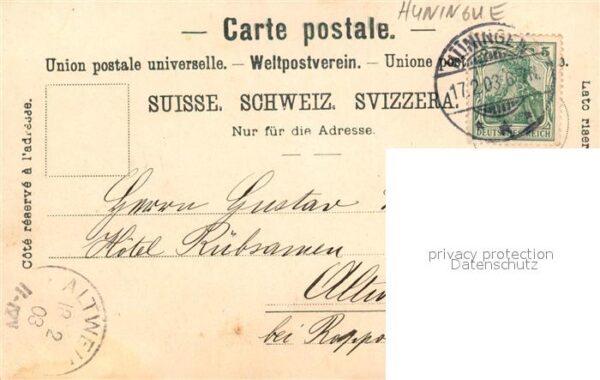 HUNINGUE
— Carte postale. —
Union postale universelle. — Weltpostverein. — Unione
SUISSE. SCHWEIZ. SVIZZERA.
Nur für die Adresse.
Côté réservé à l'adresse.
Lato riser
HÜNINGEN
17.2.03.6
5
DEUTSCHES REICH
Herrn Gustav
Hôtel Rübsamen
Altw
bei Rappo
ALTWEI
18 2
03
privacy protection
Datenschutz